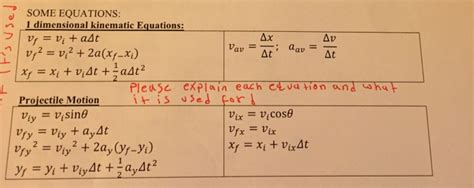 SOME EQUATIONS:
1 dimensional kinematic Equations:
v_f = v_i + aΔt
v_f² = v_i² + 2a(x_f−x_i)
x_f = x_i + v_iΔt + ½aΔt²
v_av = Δx/Δt; a_av = Δv/Δt
Please explain each equation and what
it is used for!
Projectile Motion
v_iy = v_i sinθ
v_fy = v_iy + a_yΔt
v_fy² = v_iy² + 2a_y(y_f−y_i)
y_f = y_i + v_iyΔt + ½a_yΔt²
v_ix = v_i cosθ
v_fx = v_ix
x_f = x_i + v_ixΔt
it's used